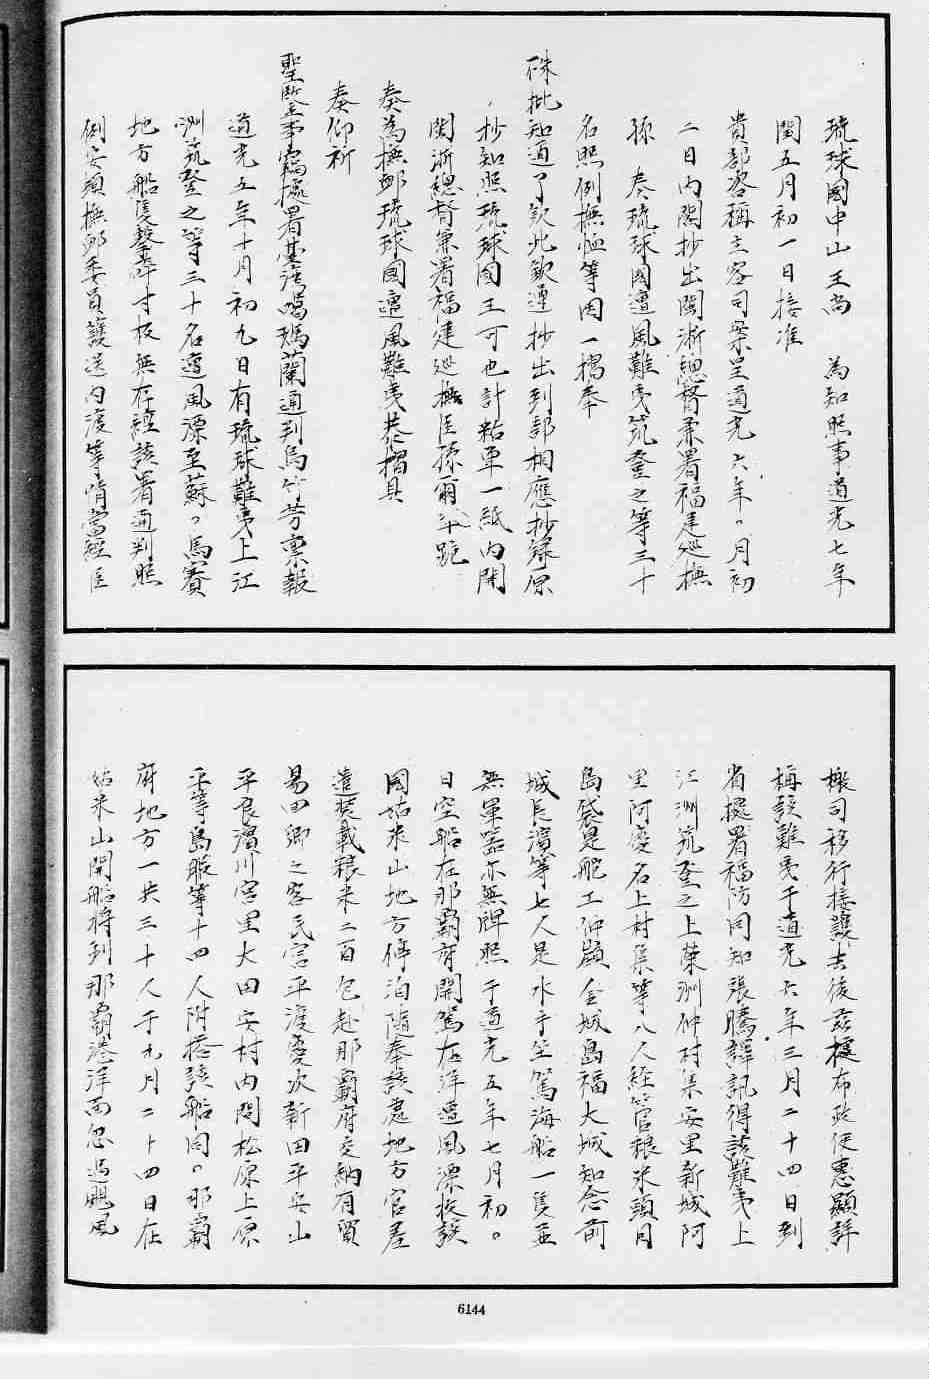 琉球國中山王尚　為知照事道光七年
閏五月初一日接准
貴部咨稱主客司案呈道光六年。月初
二日內閣抄出閩浙總督兼署福建巡撫
孫　奏琉球國遭風難夷筑登之等三十
名照例撫恤等因一摺奉
硃批知道了欽此欽遵抄出到部相應抄錄原
抄知照琉球國王可也計粘單一紙內開
閩浙總督兼署福建巡撫臣孫爾準跪
奏為撫卹琉球國遭風難夷恭摺具
奏仰祈
聖鑒事竊據署臺灣噶瑪蘭通判烏竹芳稟報
道光五年十月初九日有琉球難夷上江
洲筑登之等三十名遭風漂至蘇。馬賽
地方船隻擊碎寸板無存經該署通判照
例安頓撫卹委員護送內渡等情當經臣
檄司移行接護去後茲據布政使惠顯詳
稱該難夷于道光六年三月二十四日到
省據署福防同知張騰譯訊得該難夷上
江洲筑登之上榮洲仲村集安里新城阿
里阿慶名上村集等八人經管粮米頭目
島袋是舵工仲嶺金城島福大城知念前
城長濱等七人是水手坐駕海船一隻並
無軍器亦無牌照于道光五年七月初。
日空船在那霸府開駕在洋遭風漂收該
國姑米山地方停泊隨奉該處地方官差
遣裝載粮米二百包赴那霸府交納有貿
易田鄉之客民宮平渡慶次新田平安山
平良濱川宮里大田安村內間松原上原
平等島服等十四人附搭該船同。那霸
府地方一共三十人于九月二十四日在
姑米山開船將到那霸港洋面忽遇颶風
6144